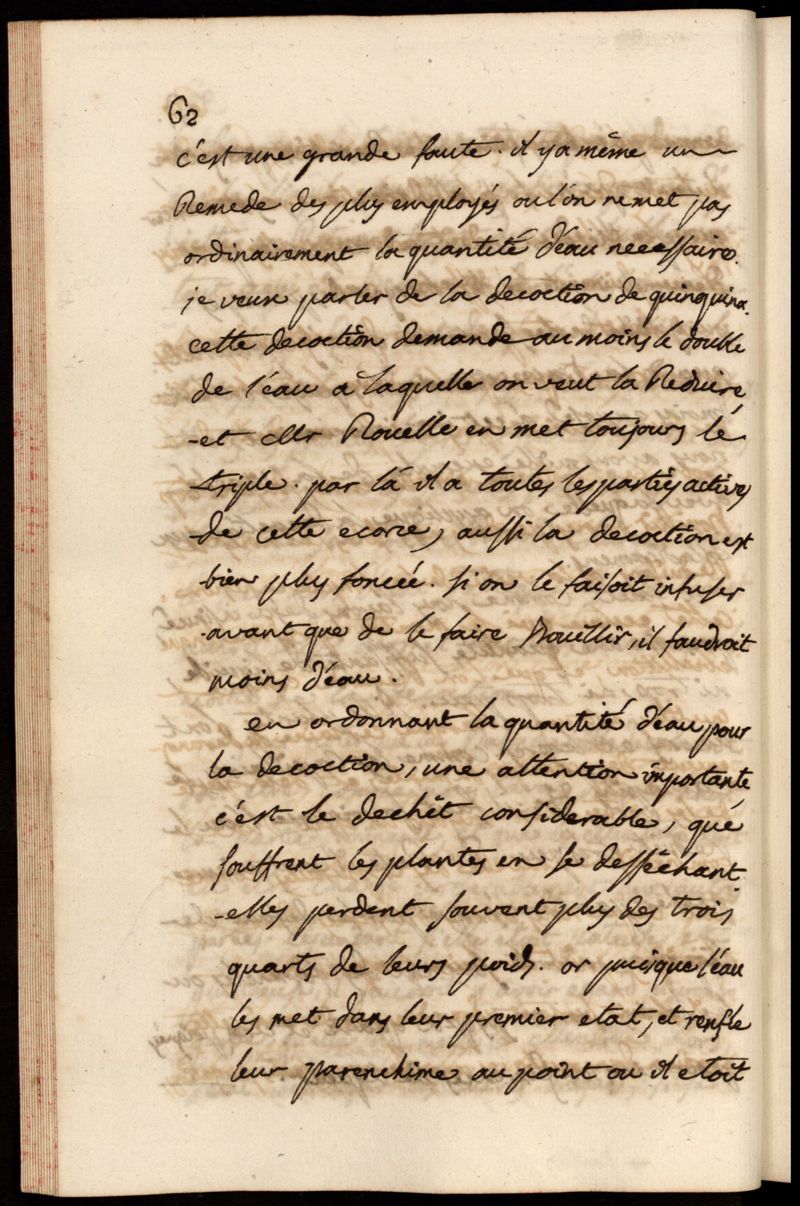 62
c'est une grande faute. il y a même un
Remede des plus employés ou l'on ne met pas
ordinairement la quantité d'eau necessaire.
je veux parler de la decoction de quinquina.
cette decoction demande au moins le double
de l'eau a laquelle on veut la Reduire
et Mr Rouelle en met toujours le
triple. par là il a toutes les parties actives
de cette ecorce, aussi la decoction est
bien plus foncée. si on le faisoit infuser
avant que de le faire Bouillir, il faudroit
moins d'eau.
en ordonnant la quantité d'eau pour
la decoction, une attention importante
c'est le dechêt considerable, que
souffrent les plantes en se dessêchant
elles perdent souvent plus des trois
quarts de leurs poids. or puisque l'eau
les met dans leur premier etat, et renfle
leur parenchime au point ou il etoit